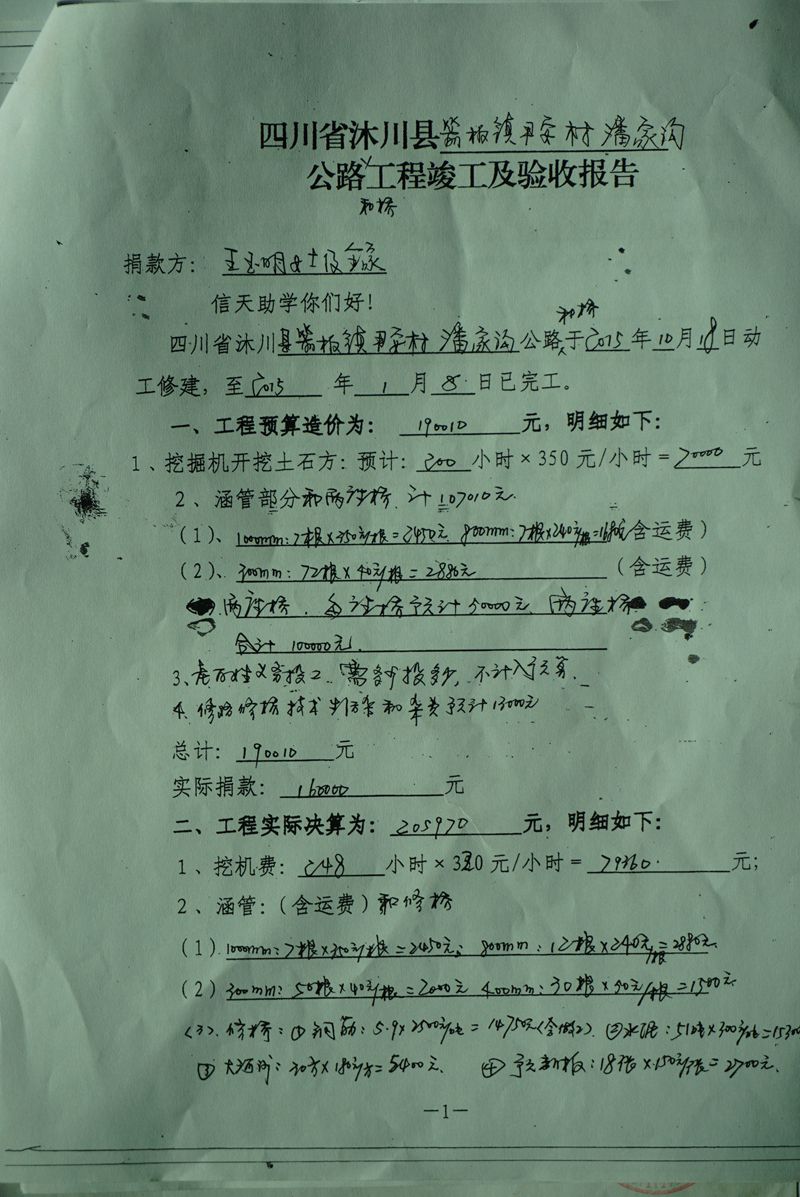 四川省沐川县箭板镇尹宋村潘家沟
公路工程竣工及验收报告
和桥
捐款方：王玉明女士及全家
信天助学你们好！
和桥
四川省沐川县箭板镇尹宋村潘家沟公路于2015年10月18日动
工修建，至2015年1月8日已完工。
一、工程预算造价为：190010元，明细如下：
1、挖掘机开挖土石方：预计：200小时×350元/小时＝70000元
2、涵管部分和两座桥，计107010元
(1)、1000mm:7根×350元/根=2450元 800mm:7根×240元/根=1680元(含运费)
(2)、300mm:72根×40元/根=2880元(含运费)
两座桥，每座桥预计50000元，两座桥
合计100000元.
3、老百姓义务投工，需多少投多少，不计入预算.
4、修路修桥技术和杂费预计13000元
总计：190010元
实际捐款：160000元
二、工程实际决算为：205970元，明细如下：
1、挖机费：248小时×320元/小时＝79360元；
2、涵管：(含运费)和修桥
(1)1000mm:7根×350元/根=2450元；800mm:12根×240元/根=2880元
(2)300mm:50根×40元/根=2000元 400mm:30根×50元/根=1500元
(3)、修桥：①钢筋：5.9×2500元/吨=14750元 ②水泥：51吨×300元/吨=15300
③大河沙：30方×180元/方=5400元、④板：18张×150元/张=2700元.
—1—